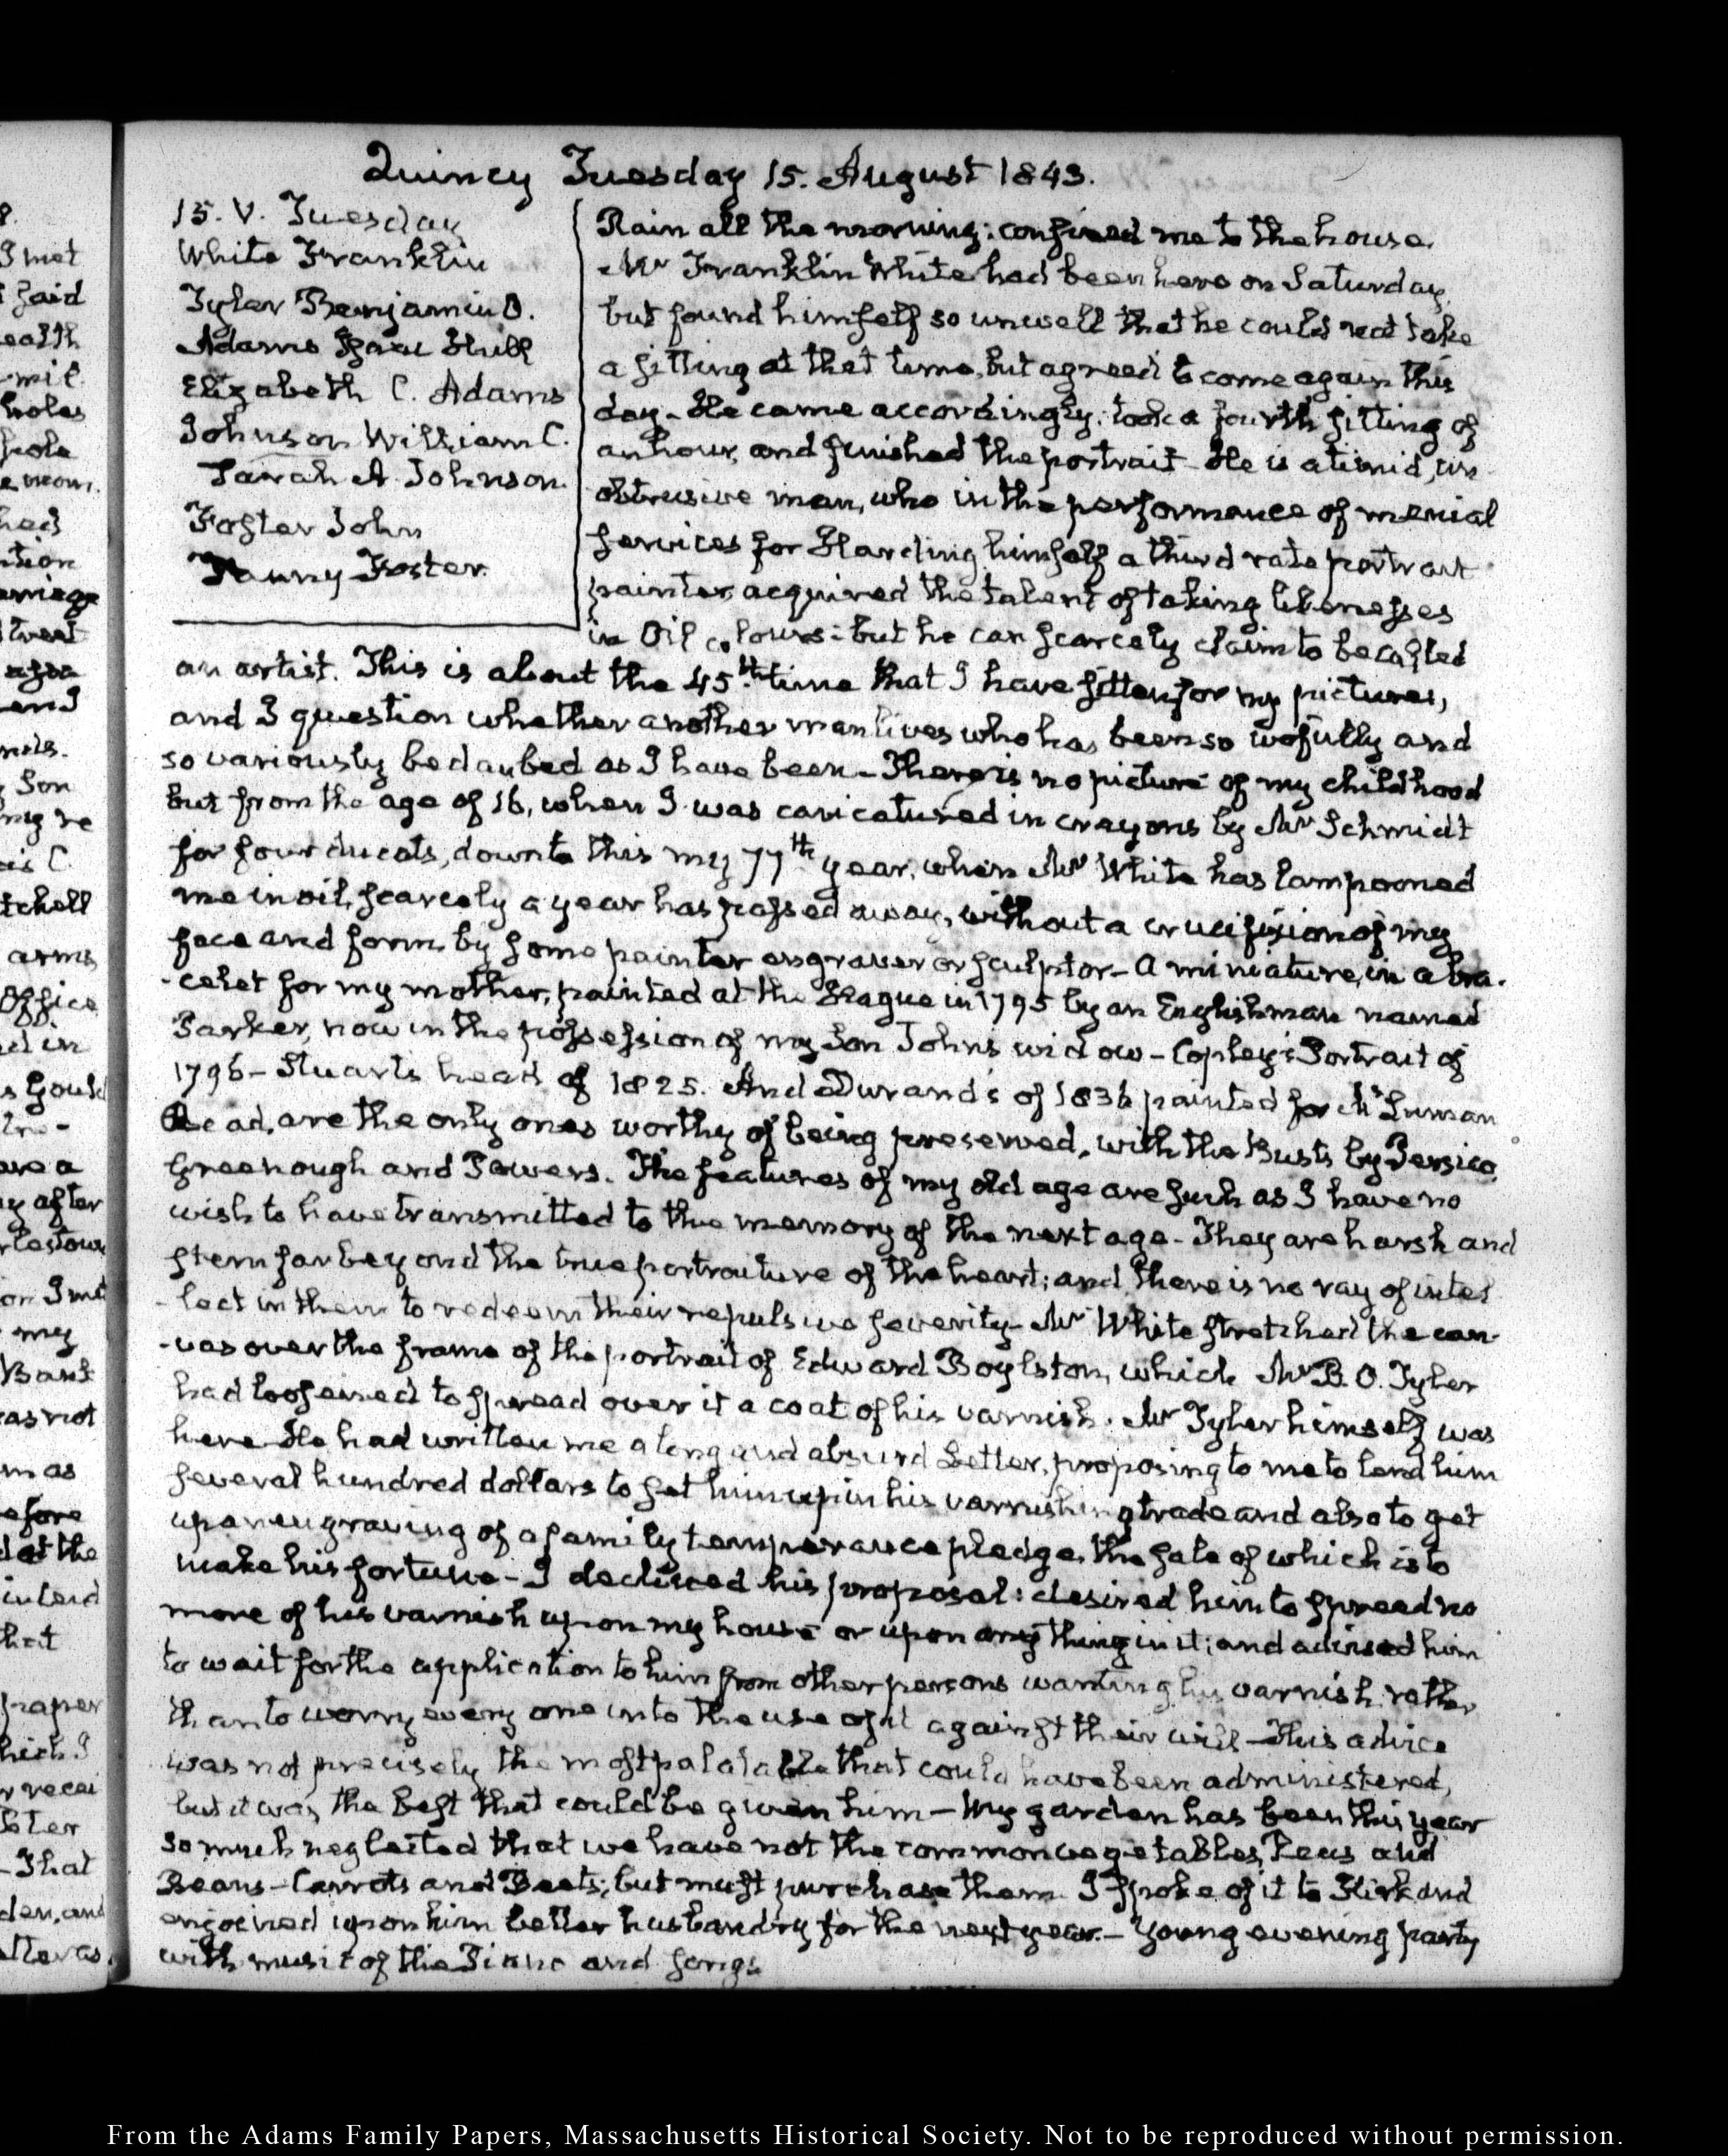 Quincy Tuesday 15. August 1843.
15. V. Tuesday
White Franklin
Tyler Benjamin O.
Adams Isaac Hull
Elizabeth C. Adams
Johnson William C.
Sarah A Johnson.
Foster John
Fanny Foster.
Rain all the morning: confined me to the house.
Mr Franklin White had been here on Saturday,
but found himself so unwell that he could not take
a sitting at that time, but agreed to come again this
day. He came accordingly: took a fourth sitting of
an hour, and finished the portrait. He is a timid, un
obtrusive man, who in the performance of menial
services for Harding himself a third rate portrait
painter, acquired the talent of taking likenesses
in Oil colours: but he can scarcely claim to be called
an artist. This is about the 45th time that I have sitten for my pictures,
and I question whether another man lives who has been so wofully and
so variously bedaubed as I have been - There is no picture of my childhood
but from the age of 16, when I was caricatured in crayons by Mr Schmidt
for four ducats, down to this my 77th year, when Mr White has lampooned
me in oil, scarcely a year has passed away, without a crucifixion of my
face and form by some painter engraver or sculptor - A miniature, in a bra-
-celet for my mother, painted at the Hague in 1795 by an Englishman named
Parker, now in the possession of my Son John's widow - Copley's Portrait of
1796 - Stuart's head of 1825. And Durand's of 1836 painted for Mr Luman
Read, are the only ones worthy of being preserved, with the Busts by Persico,
Greenough and Powers. The features of my old age are such as I have no
wish to have transmitted to the memory of the next age - They are harsh and
stern far beyond the true portraiture of the heart; and there is no ray of intel
-lect in them to redeem their repulsive severity - Mr White stretched the can-
-vas over the frame of the portrait of Edward Boylston, which Mr B. O. Tyler
had loosened to spread over it a coat of his varnish. Mr Tyler himself was
here. He had written me a long and absurd Letter, proposing to me to lend him
several hundred dollars to set him up in his varnishing trade and also to get
up an engraving of a family temperance pledge, the sale of which is to
make his fortune - I declined his proposal: desired him to spread no
more of his varnish upon my house or upon any thing in it; and advised him
to wait for the application to him from other persons wanting his varnish rather
than to worry every one into the use of it against their will - This advice
was not precisely the most palatable that could have been administered,
but it was the best that could be given him - My garden has been this year
so much neglected that we have not the common vegetables, Peas and
Beans - Carrots and Beets; but must purchase them. I spoke of it to Kirk and
enjoined upon him better husbandry for the next year. - Young evening party
with music of the Piano and songs
From the Adams Family Papers, Massachusetts Historical Society. Not to be reproduced without permission.